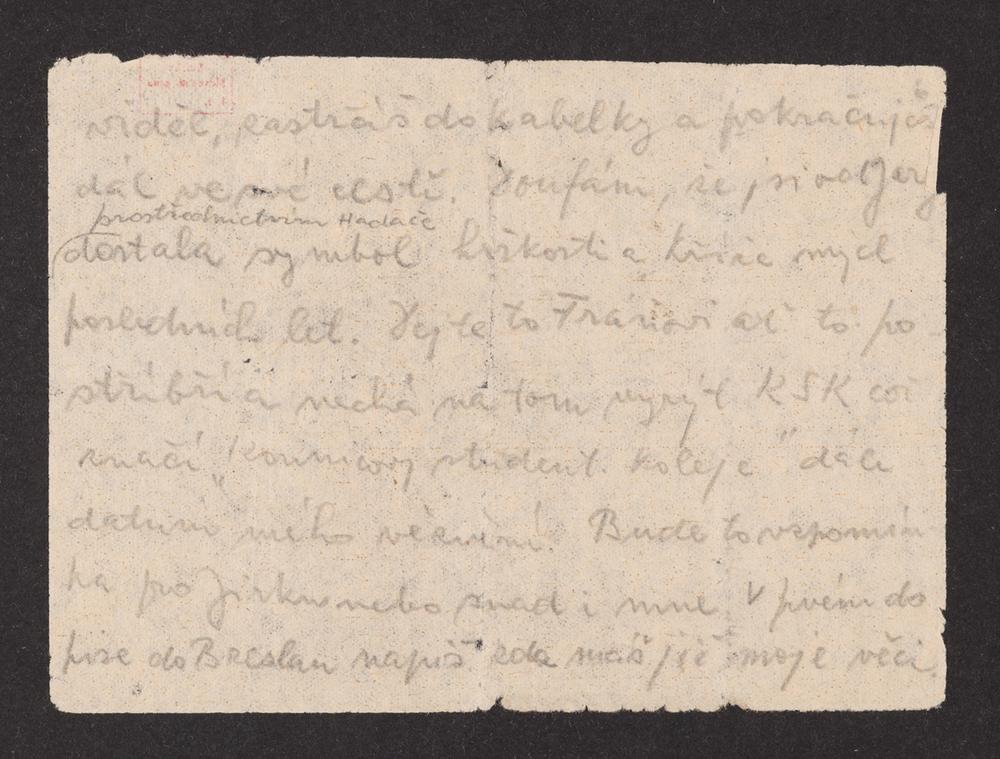 6
vidět, zastrčíš do kabelky a pokračuješ
dál ve své cestě. Doufám, že jsi od
prostřednictvím Hadače
dostala symbol a kříže mých
posledních let. Dejte to Fráňovi ať to po
stříbří a nechá na tom vyrýt KSK což
značí „Kounicovy student. koleje" dále
datum mého věznění. Bude to vzpomín
ka pro Jirku nebo snad i mne. V prvém do
pise do Breslau napiš zda máš již moje věci.